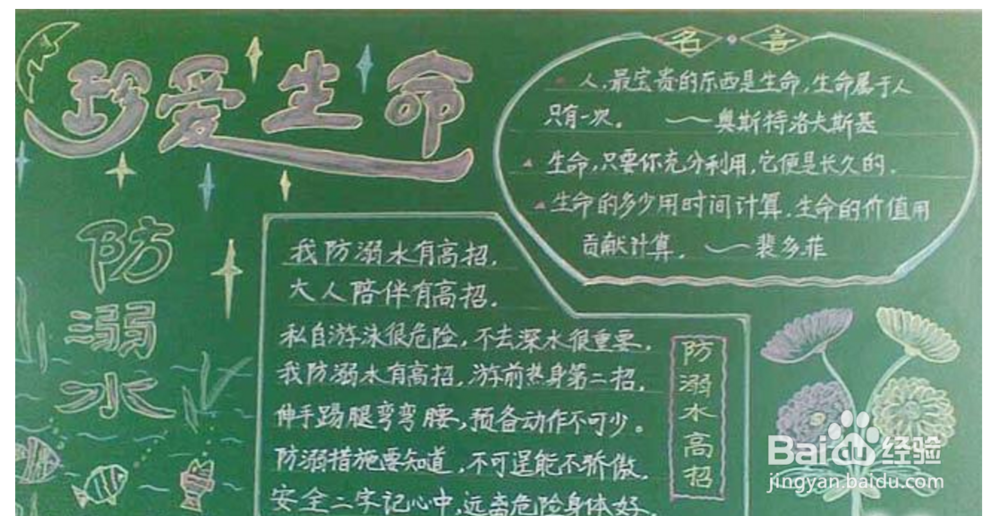 珍爱生命
防溺水
名言
人,最宝贵的东西是生命,生命属于人
只有一次。 ——奥斯特洛夫斯基
生命,只要你充分利用,它便是长久的.
生命的多少用时间计算.生命的价值用
贡献计算. ——裴多菲
我防溺水有高招.
大人陪伴有高招.
私自游泳很危险,不去深水很重要.
我防溺水有高招,游前热身第二招.
伸手踢腿弯弯腰,预备动作不可少。
防溺措施要知道,不可逞能不骄傲.
安全二字记心中,远离危险身体好.
防溺水高招
Baidu经验
jingyan.baidu.com